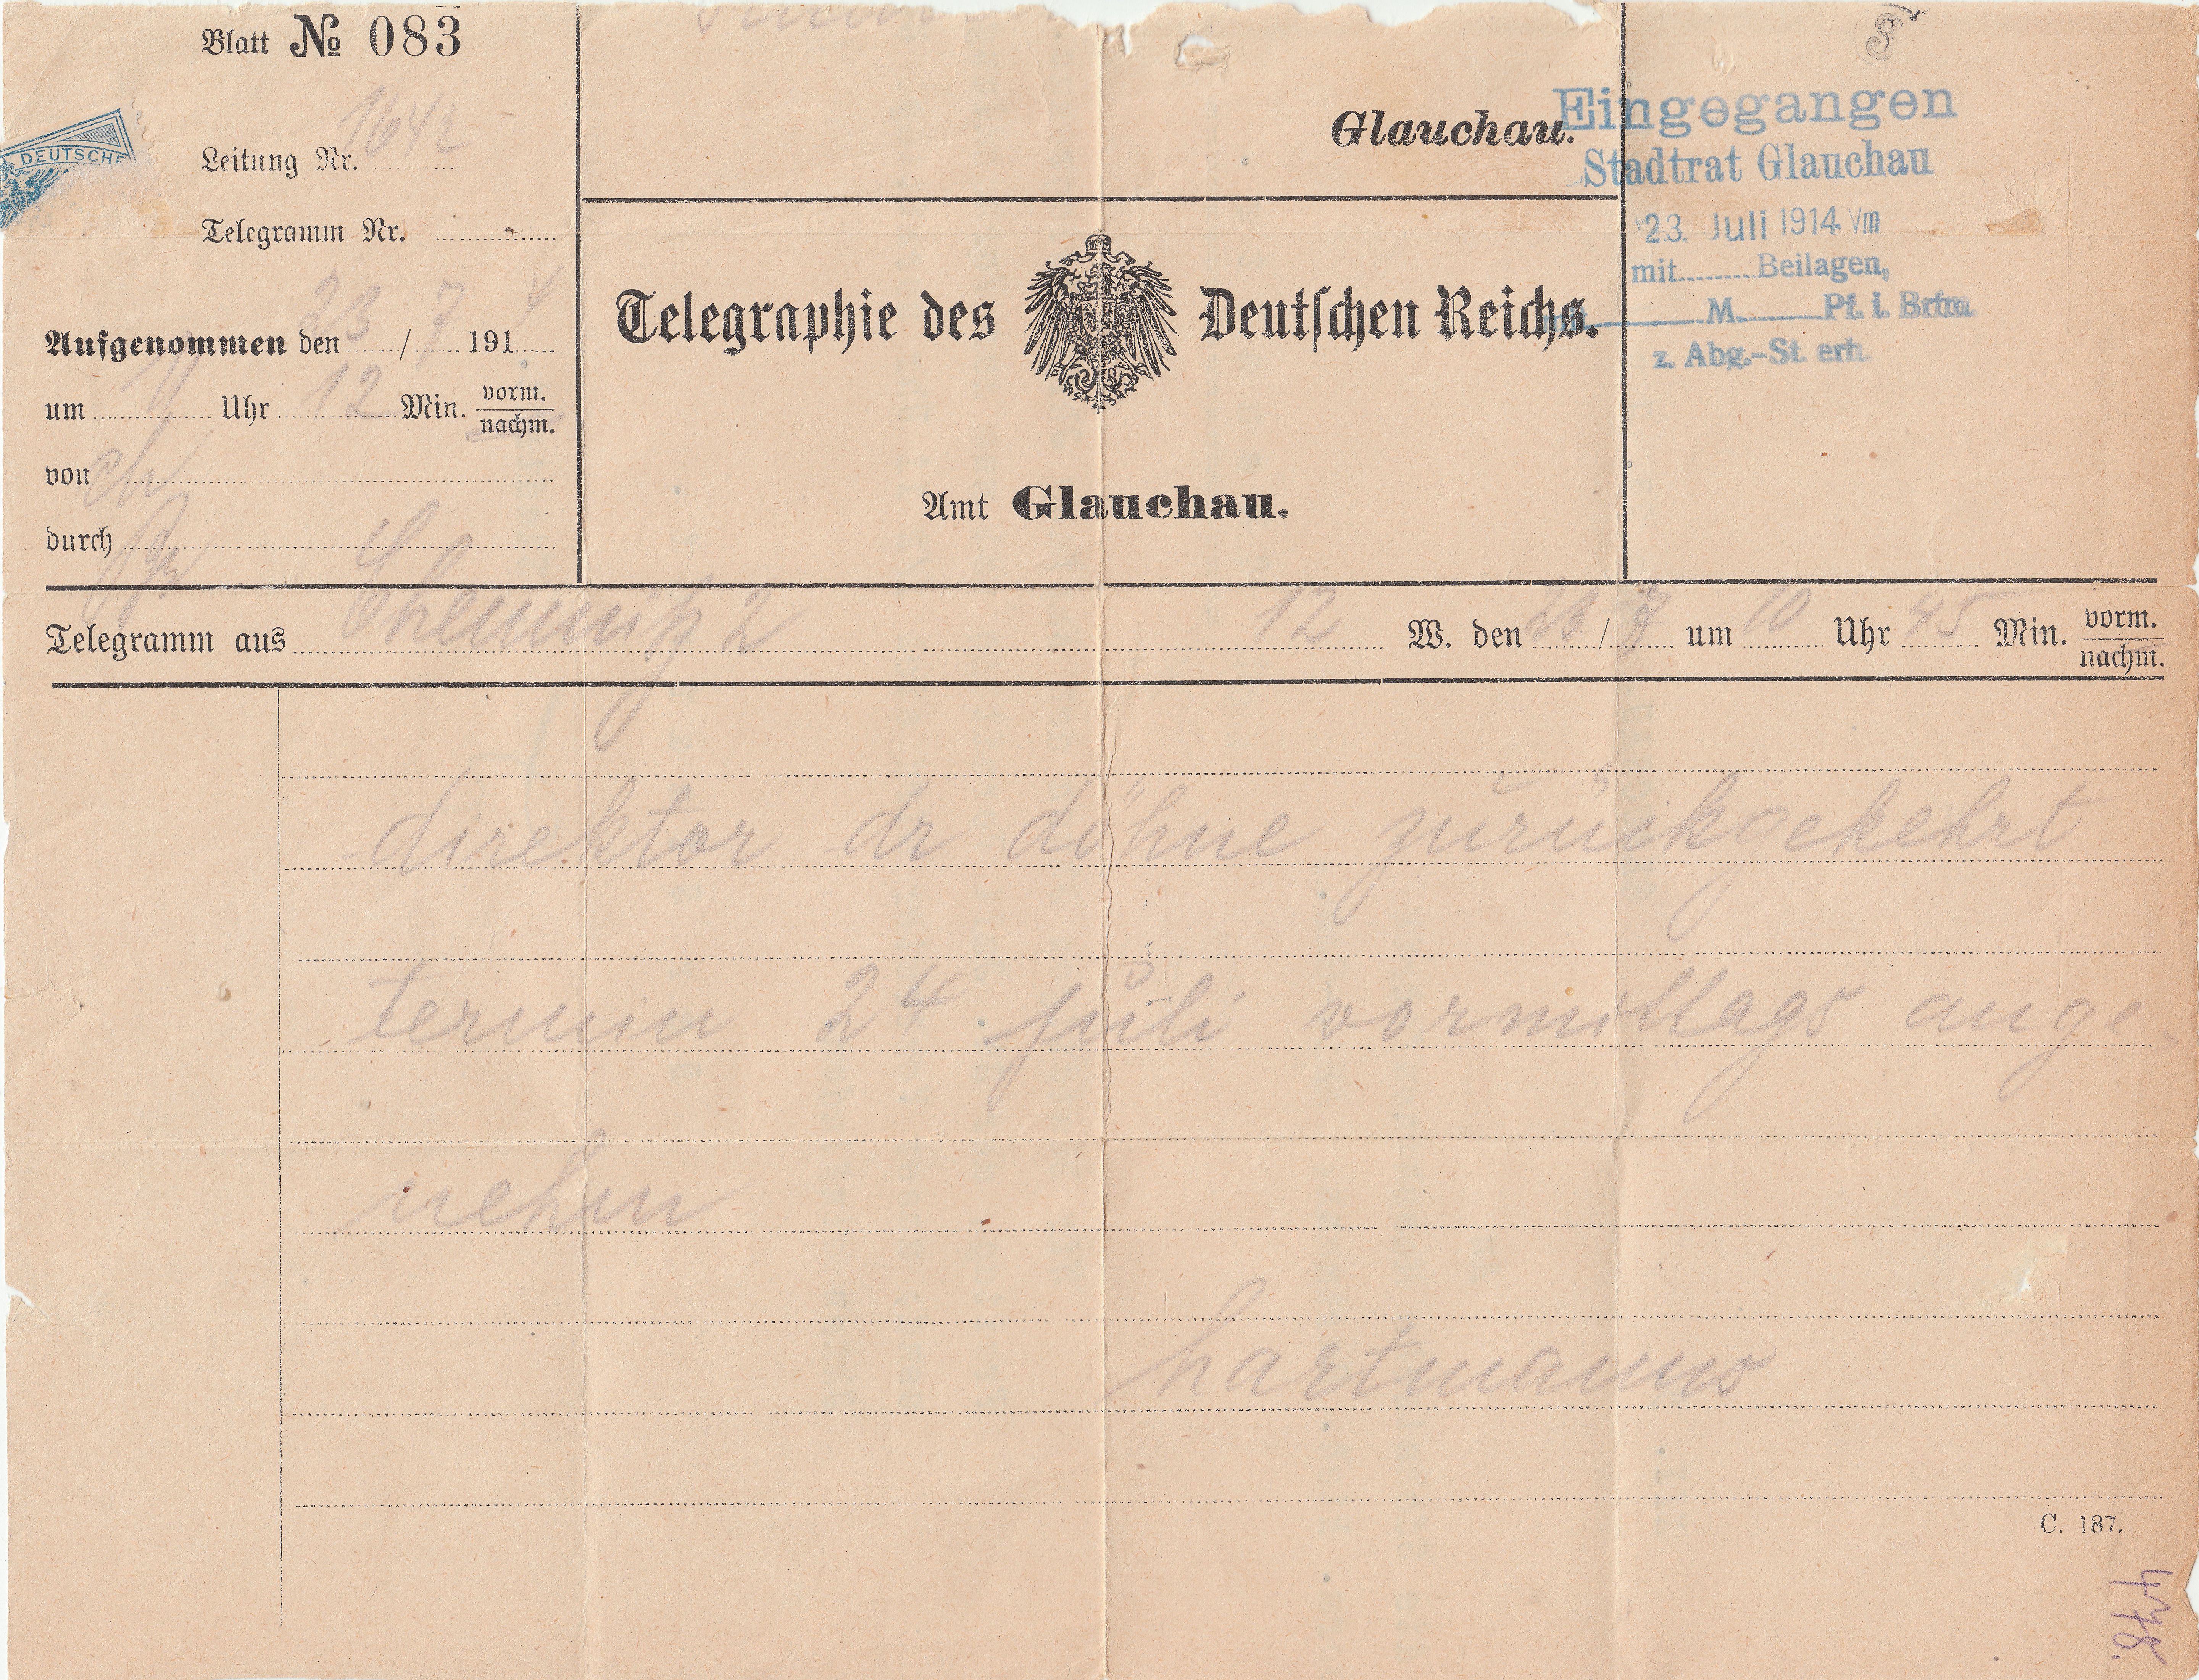 Blatt № 083
DEUTSCHE
Leitung Nr. 1642
Telegramm Nr.
Aufgenommen den 23 / 7 1914
um 11 Uhr 12 Min. vorm. nachm.
von
durch
Glauchau.
Telegraphie des Deutschen Reichs.
Amt Glauchau.
Eingegangen
Stadtrat Glauchau
23. Juli 1914 Vm
mit Beilagen,
M. Pf. i. Brfm.
z. Abg.-St. erh.
Telegramm aus Chemnitz 2 12 W. den 23 / 7 um 10 Uhr 45 Min. vorm. nachm.
direktor dr döhne zurückgekehrt
termin 24 juli vormittags ange
nehm
hartmann
C. 187.
478.